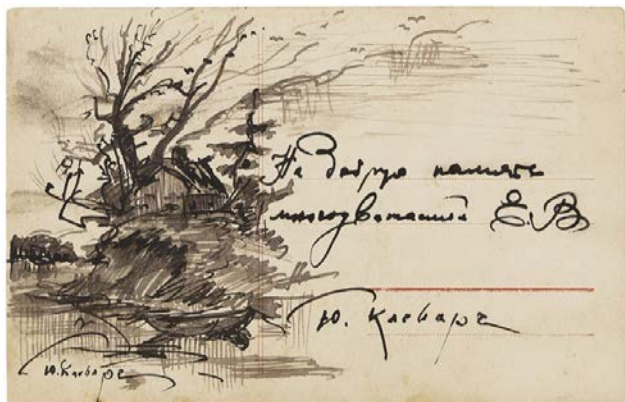 На добрую память
многоуважаемой Е.В
Ю. Клеверъ
Ю. Клеверъ